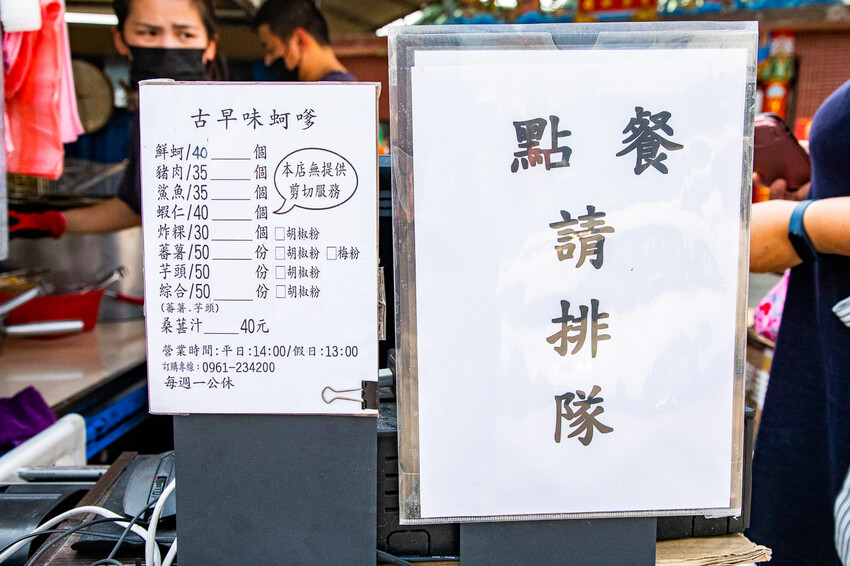 古早味蚵嗲
鮮蚵/40_____個
豬肉/35_____個
鯊魚/35_____個
蝦仁/40_____個
本店無提供
剪切服務
炸粿/30_____個 □胡椒粉
蕃薯/50_____份 □胡椒粉 □梅粉
芋頭/50_____份 □胡椒粉
綜合/50_____份 □胡椒粉
(蕃薯.芋頭)
桑葚汁____40元
營業時間:平日:14:00/假日:13:00
訂購專線:0961-234200
每週一公休
點餐
請
排
隊